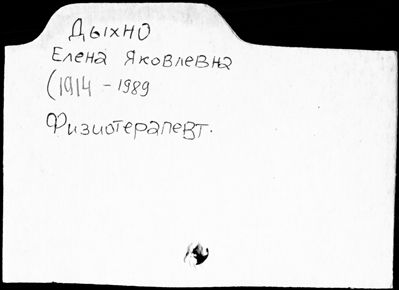 Дыхно
Елена Яковлевна
(1914 - 1989
Физиотерапевт.